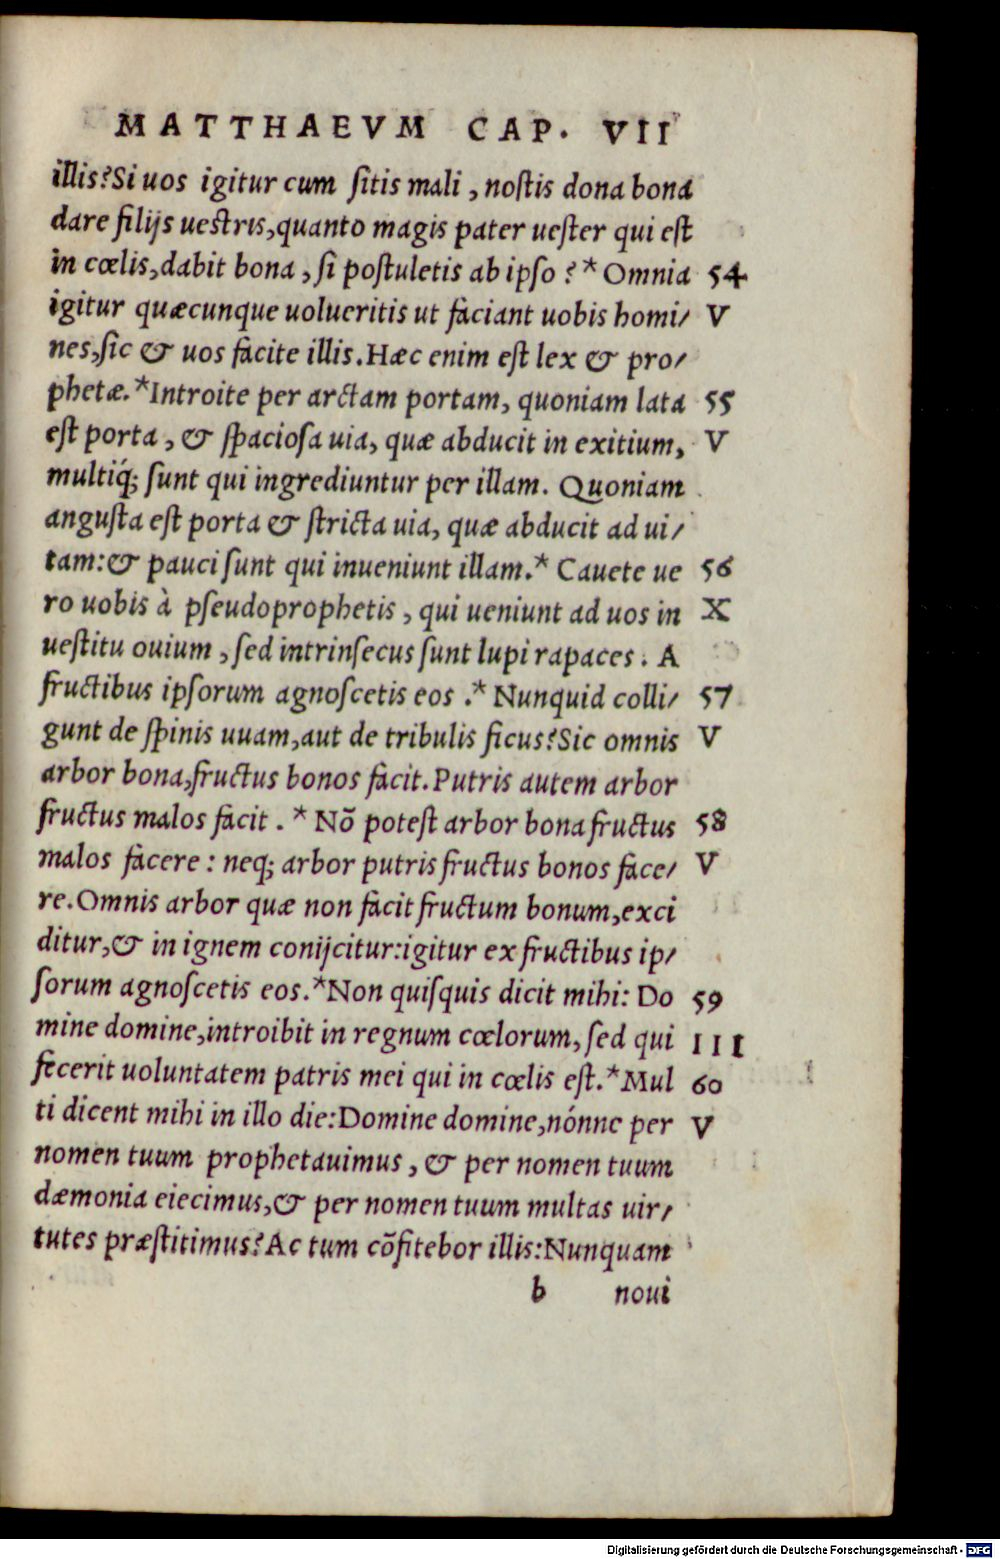 MATTHAEVM CAP. VII
illis?Si uos igitur cum ſitis mali, noſtis dona bona
dare filijs ueſtris,quanto magis pater ueſter qui eſt
in cœlis,dabit bona, ſi poſtuletis ab ipſo?*Omnia 54
igitur quæcunque uolueritis ut faciant uobis homi/ V
nes,ſic & uos facite illis.Hæc enim eſt lex & pro/
phetæ.*Introite per arctam portam, quoniam lata 55
eſt porta, & ſpacioſa uia, quæ abducit in exitium, V
multiq́; ſunt qui ingrediuntur per illam. Quoniam
anguſta eſt porta & ſtricta uia, quæ abducit ad ui/
tam:& pauci ſunt qui inueniunt illam.* Cauete ue 56
ro uobis à pſeudoprophetis, qui ueniunt ad uos in X
ueſtitu ouium, ſed intrinſecus ſunt lupi rapaces. A
fructibus ipſorum agnoſcetis eos.* Nunquid colli/ 57
gunt de ſpinis uuam,aut de tribulis ficus?Sic omnis V
arbor bona,fructus bonos facit.Putris autem arbor
fructus malos facit.* Nõ poteſt arbor bona fructus 58
malos facere: neq; arbor putris fructus bonos face/ V
re.Omnis arbor quæ non facit fructum bonum,exci
ditur,& in ignem conijcitur:igitur ex fructibus ip/
ſorum agnoſcetis eos.*Non quiſquis dicit mihi: Do 59
mine domine,introibit in regnum cœlorum, ſed qui III
fecerit uoluntatem patris mei qui in cœlis eſt.*Mul 60
ti dicent mihi in illo die:Domine domine,nónne per V
nomen tuum prophetauimus, & per nomen tuum
dæmonia eiecimus,& per nomen tuum multas uir/
tutes præſtitimus?Ac tum cõfitebor illis:Nunquam
b noui
Digitalisierung gefördert durch die Deutsche Forschungsgemeinschaft - DFG